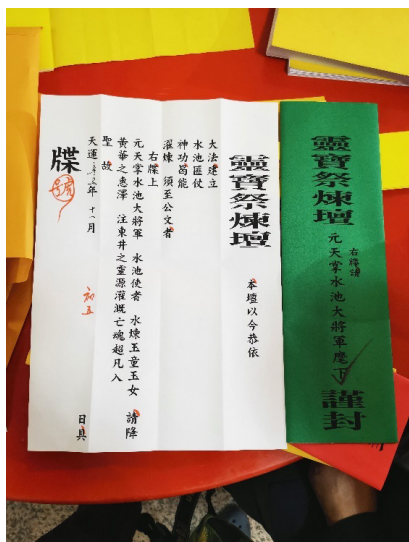 靈寶祭煉壇
右牒請
元天掌水池大將軍麾下
謹封
靈寶祭煉壇
本壇以今恭依
大法建立
水池匡仗
神功曷能
濯煉 須至公文者
右牒上
元天掌水池大將軍 水池使者 水煉玉童玉女 請降
黃華之惠澤 注東井之靈源灌溉亡魂超凡入
聖 故
天運 年 十一月 初五 日具
牒